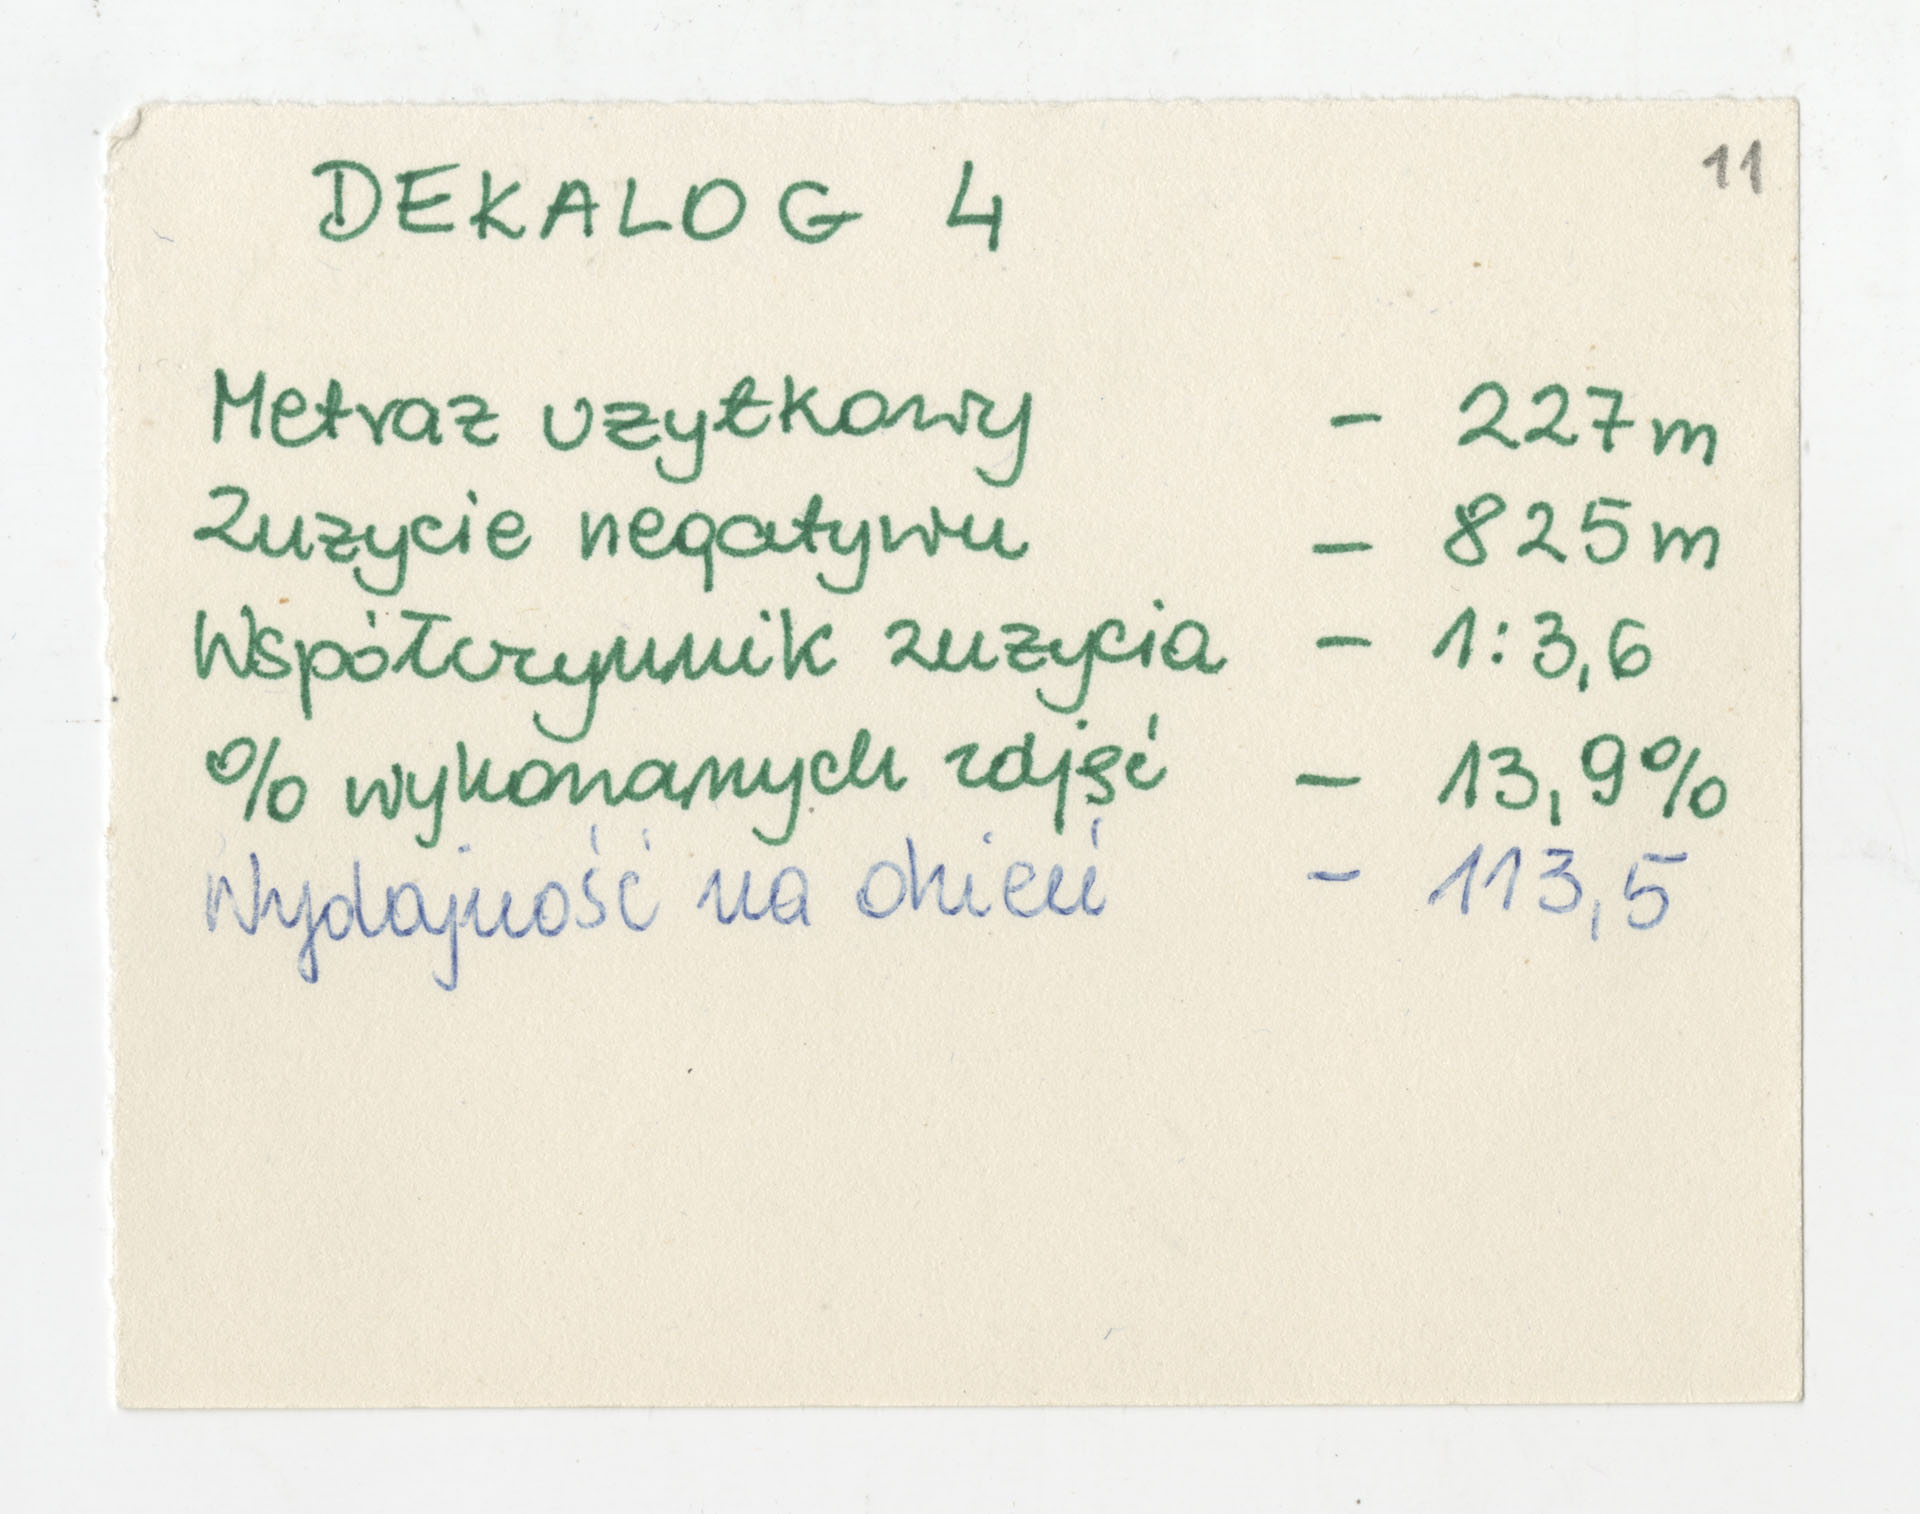 11
DEKALOG 4
Metraz uzytkowy - 227m
Zuzycie negatywu - 825m
Współczynnik zuzycia - 1:3,6
% wykonanych zdjęć - 13,9%
Wydajność na dzień - 113,5